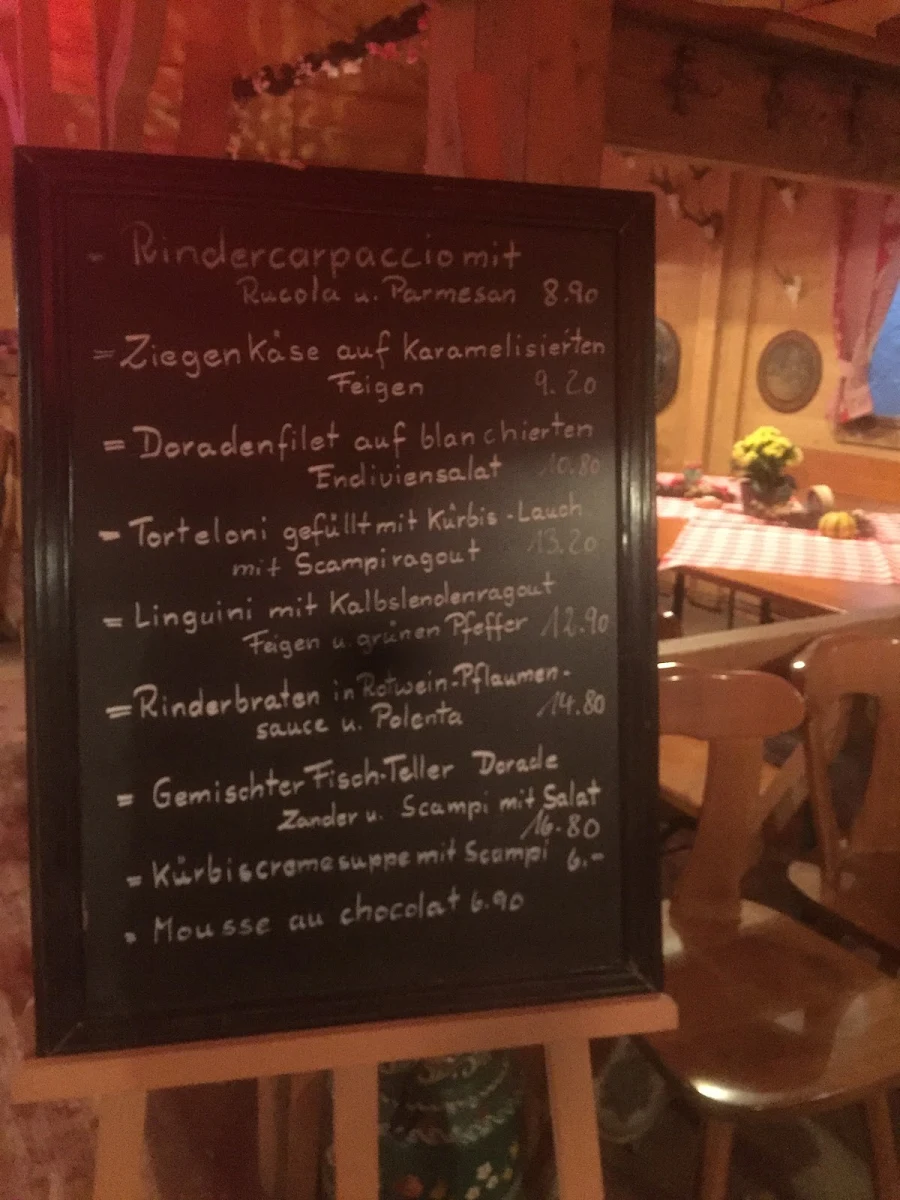 - Rindercarpaccio mit
Rucola u. Parmesan 8.90
= Ziegenkäse auf Karamelisierten
Feigen 9.20
= Doradenfilet auf blanchierten
Endiviensalat 10.80
- Torteloni gefüllt mit Kürbis-Lauch
mit Scampiragout 13.20
= Linguini mit Kalbslendenragout
Feigen u. grünen Pfeffer 12.90
= Rinderbraten in Rotwein-Pflaumen-
sauce u. Polenta 14.80
= Gemischter Fisch-Teller Dorade
Zander u. Scampi mit Salat
16.80
= Kürbiscremesuppe mit Scampi 6.-
= Mousse au chocolat 6.90